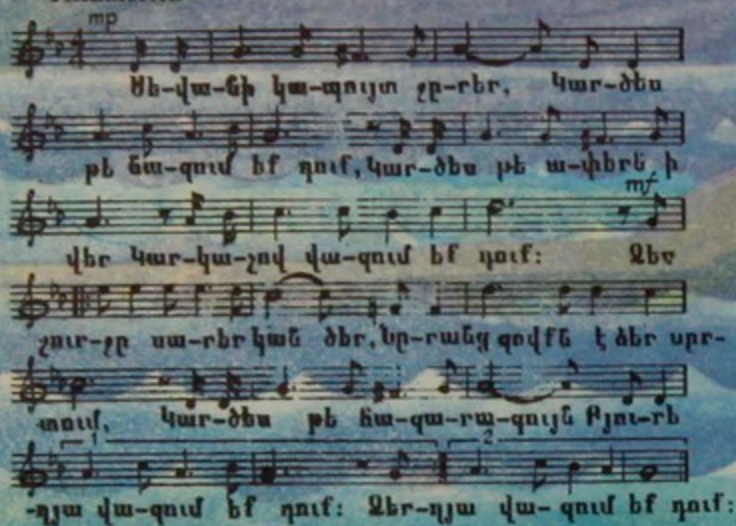 mp
Սե-վա-նի կա-պույտ ջը-րեր, Կար-ծես
թե նա-զում եք դուք, Կար-ծես թե ա-փերն ի
mf
վեր Կար-կա-չով վա-զում եք դուք: Ձեր
շուր-ջը սա-րեր կան ծեր, Նը-րանց գովքն է ձեր սըր-
տում, Կար-ծես թե
1 2
-ղյա վա-զում եք դուք: Ձեր-ղյա վա- զում եք դուք: